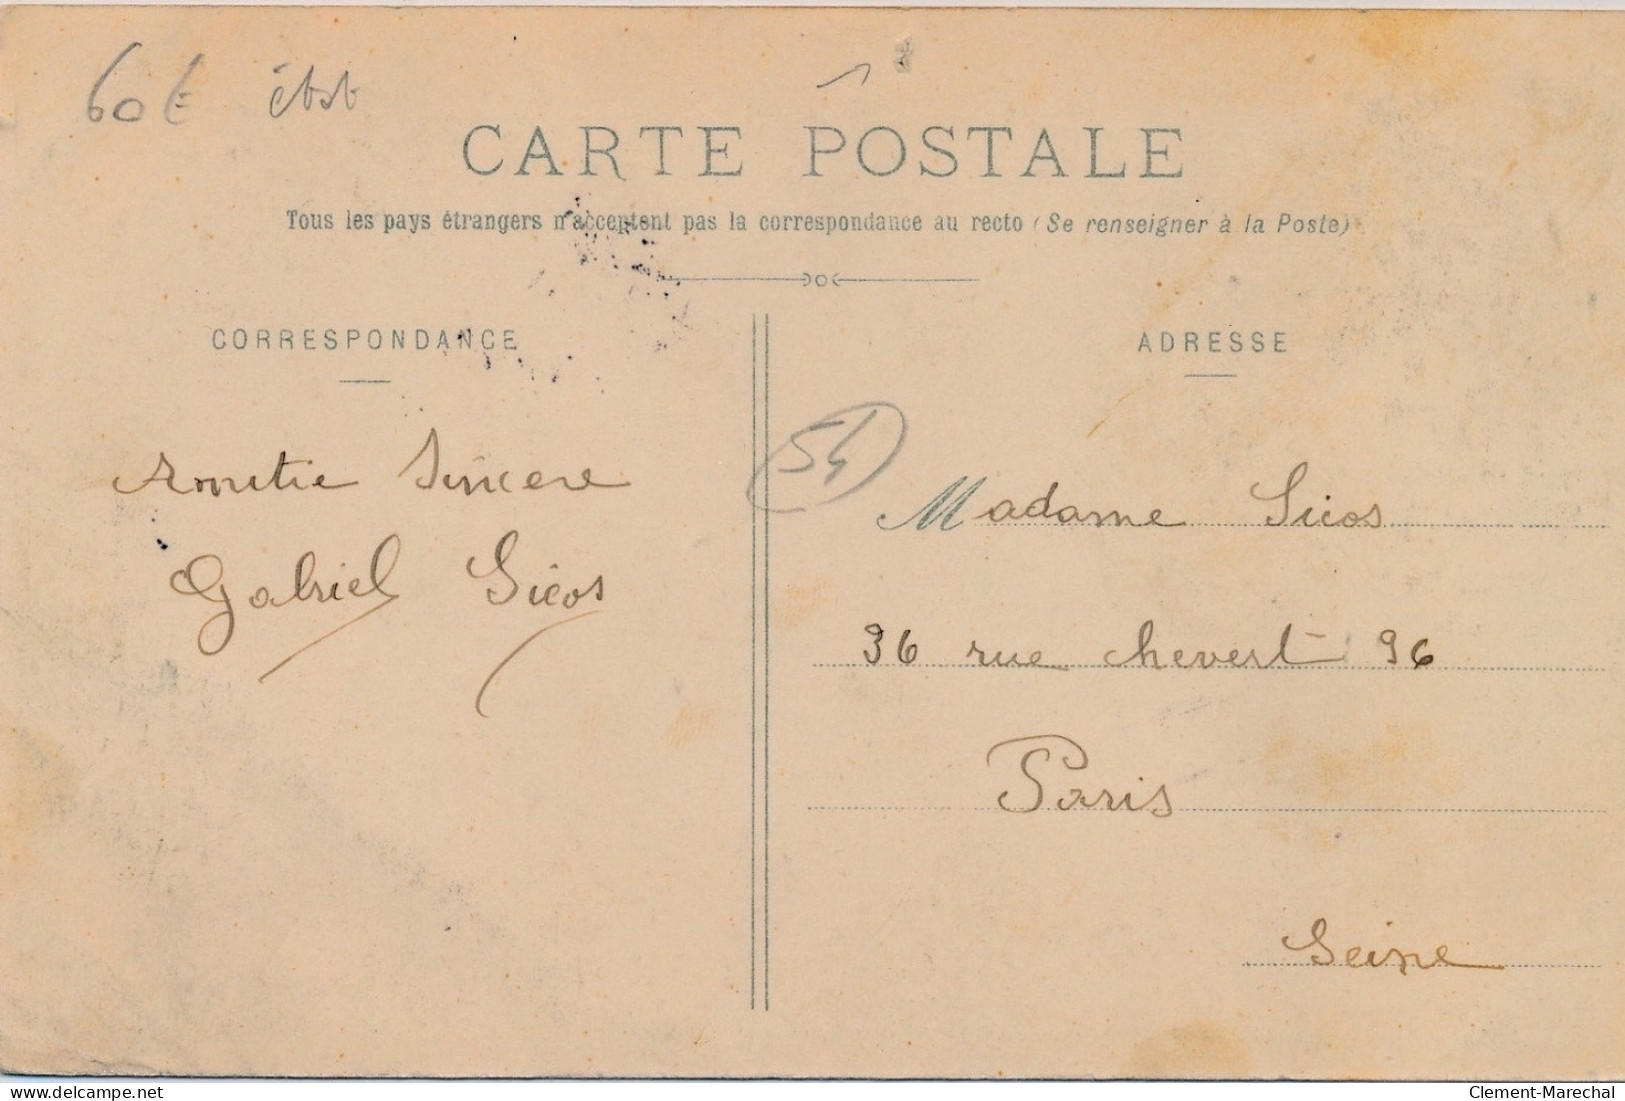 60€
CARTE POSTALE
Tous les pays étrangers n'acceptent pas la correspondance au recto (Se renseigner à la Poste)
CORRESPONDANCE
ADRESSE
Amitie Sincere
Gabriel Sicos
54
Madame Sicos
36 rue chevert 36
Paris
Seine
delcampe.net
Clement-Marechal